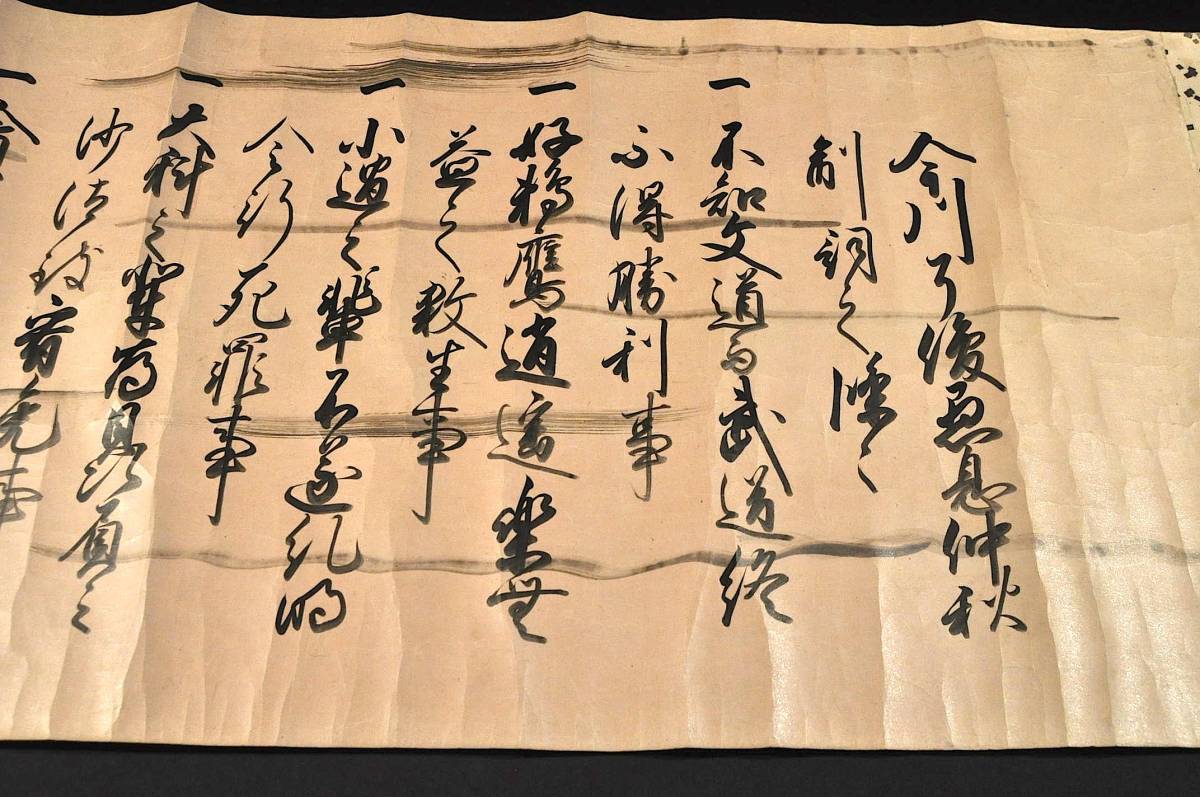 今川了俊愚息仲秋
制詞之條々
一不知文道而武道終
不得勝利事
一好鵜鷹逍遥樂無
益之殺生事
一小過之輩不遂糺明
令行死罪事
一大科之輩為贔屓之
沙汰致宥免事
一